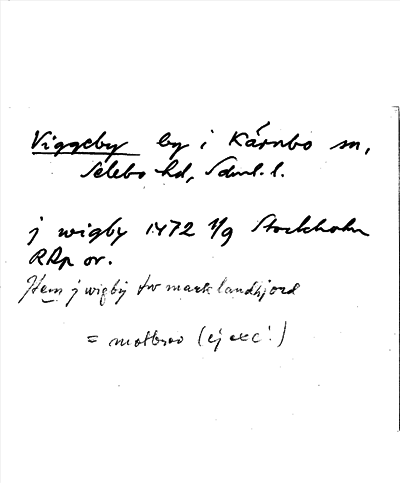 Viggeby by i Kärnbo sn,
Selebo hd, Södml. l.
j wigby 1472 1/9 Stockholm
RAp or.
Item j wigbÿ tw mark landhjord
= motbrev (ej exc!)